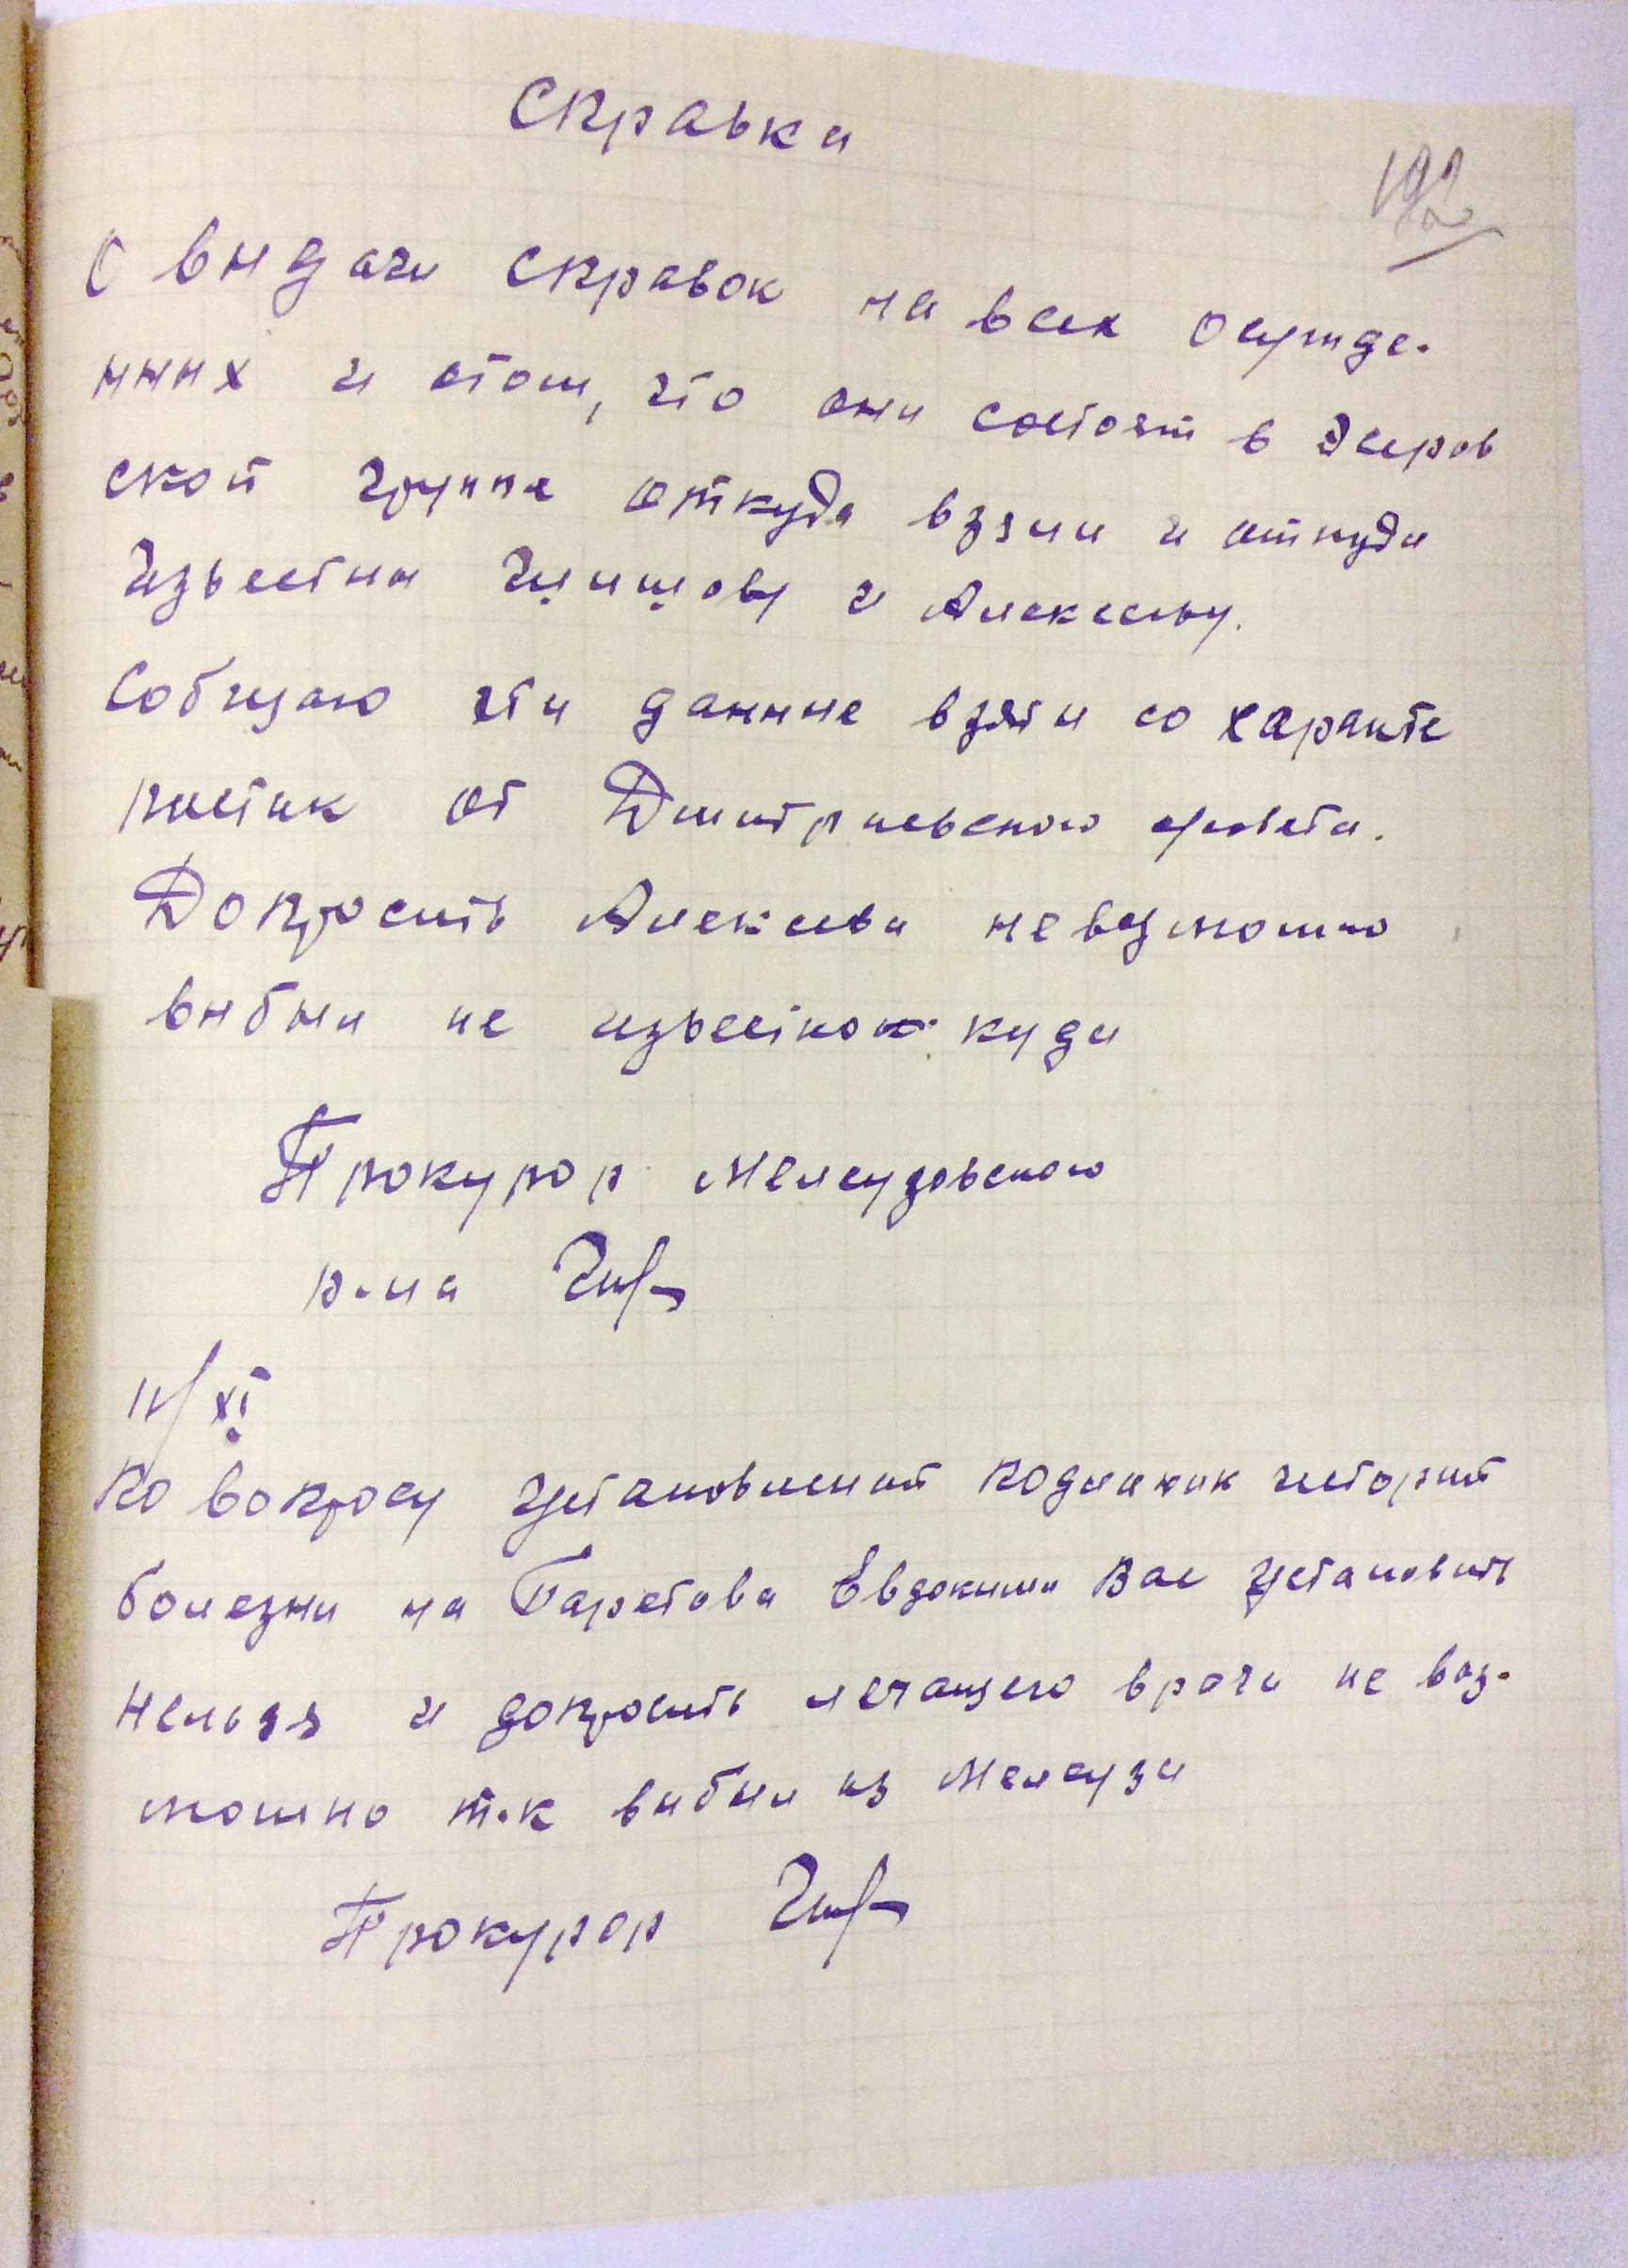 Справка
192
О выдачи справок на всех осужде-
нных и отом, что они состоят в Эсеров
ской группе откуда взяли и откуда
известна и Алексееву.
Собщаю эти данные взяты со характе
ристик от Дмитриевского с/совета.
Допросить Алексеева невозможно
выбыл не известно куда
Прокурор Мелеузовского
р-на
11/XI
По вопросу установлений подлиник историй
болезни на Таретова Евдокима Вас установить
нельзя и допросить лечащего врача не воз-
можно т.к выбыл из Мелеуза
Прокурор